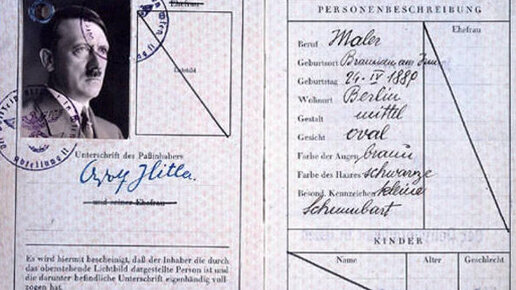 Ehefrau
Lichtbild
Unterschrift des Paßinhabers
Adolf Hitler
und seiner Ehefrau
Es wird hiermit bescheinigt, daß der Inhaber die durch
das obenstehende Lichtbild dargestellte Person ist und
die darunter befindliche Unterschrift eigenhändig voll-
zogen hat.
PERSONENBESCHREIBUNG
Ehefrau
Beruf Maler
Geburtsort Braunau am Inn
Geburtstag 24-IV 1880
Wohnort Berlin
Gestalt mittl
Gesicht oval
Farbe der Augen braun
Farbe des Haares schwarze
Besond. Kennzeichen kleine
Schnurrbart
KINDER
Name Alter Geschlecht